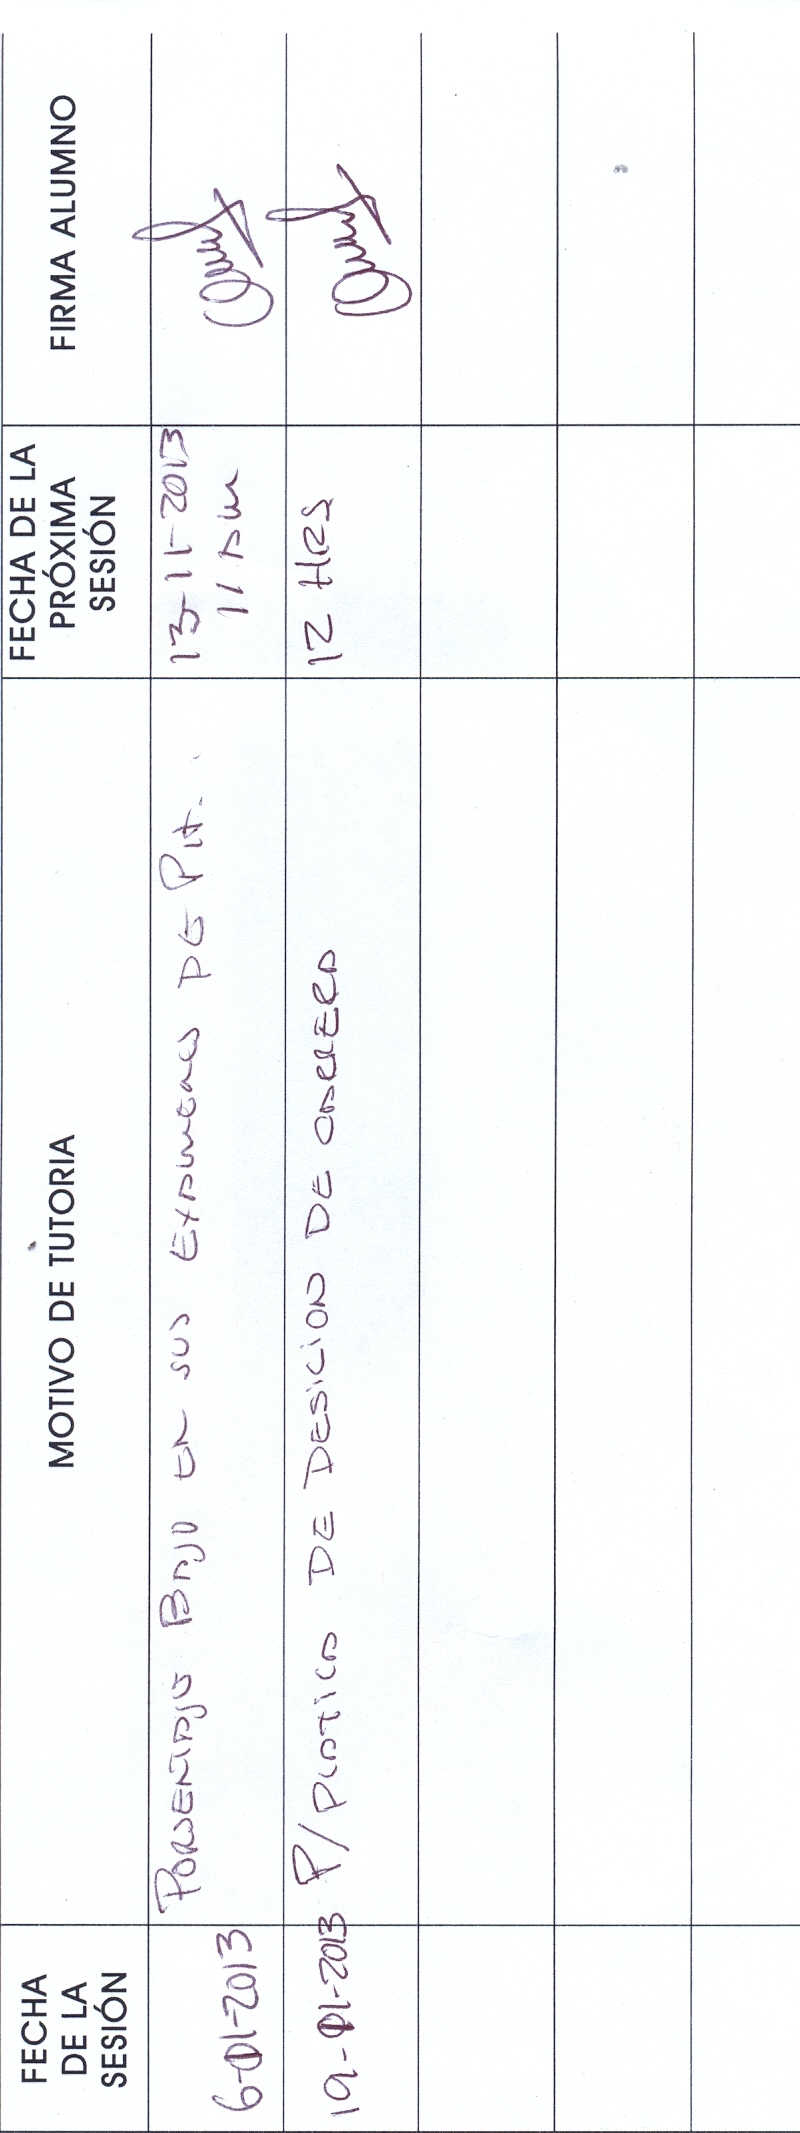 FECHA
DE LA
SESIÓN
MOTIVO DE TUTORIA
FECHA DE LA
PRÓXIMA
SESIÓN
FIRMA ALUMNO
6-01-2013
PORSENTAJE BAJO EN SUS EXAMENES DE Pit.
13-11-2013
11 AM
19-01-2013
P/PLATICA DE DESICION DE CARRERA
12 HRS